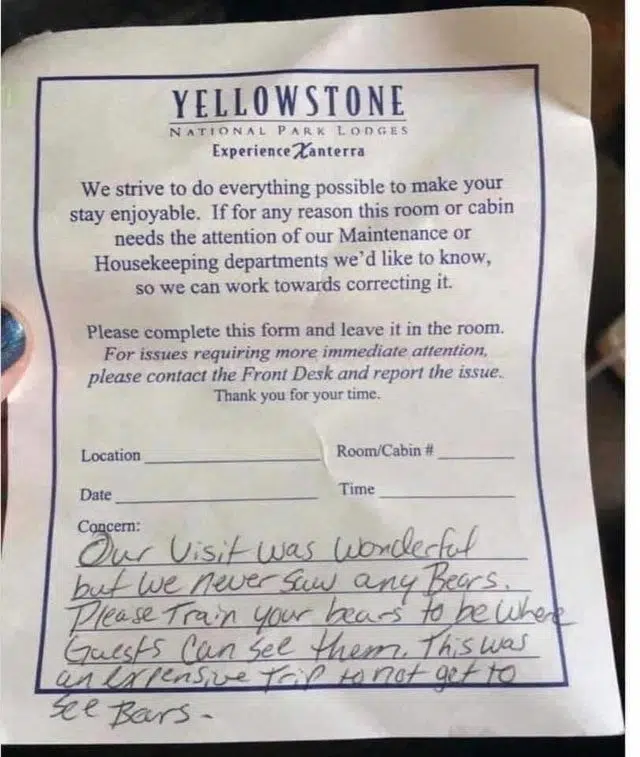 YELLOWSTONE
NATIONAL PARK LODGES
Experience Xanterra
We strive to do everything possible to make your
stay enjoyable. If for any reason this room or cabin
needs the attention of our Maintenance or
Housekeeping departments we'd like to know,
so we can work towards correcting it.
Please complete this form and leave it in the room.
For issues requiring more immediate attention,
please contact the Front Desk and report the issue.
Thank you for your time.
Location Room/Cabin #
Date Time
Concern:
Our Visit was Wonderful
but we never saw any Bears.
Please Train your bears to be where
Guests can see them. This was
an expensive trip to not get to
see Bears.